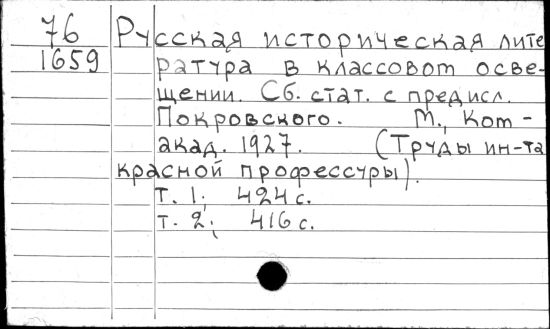 76 Русская историческая лите
1659 ратура в классовом осве-
щении. Сб. стат. с предисл.
Покровского. М., Ком-
акад. 1927. (Труды ин-та
красной профессуры).
т. 1; 424 с.
т. 2; 416 с.